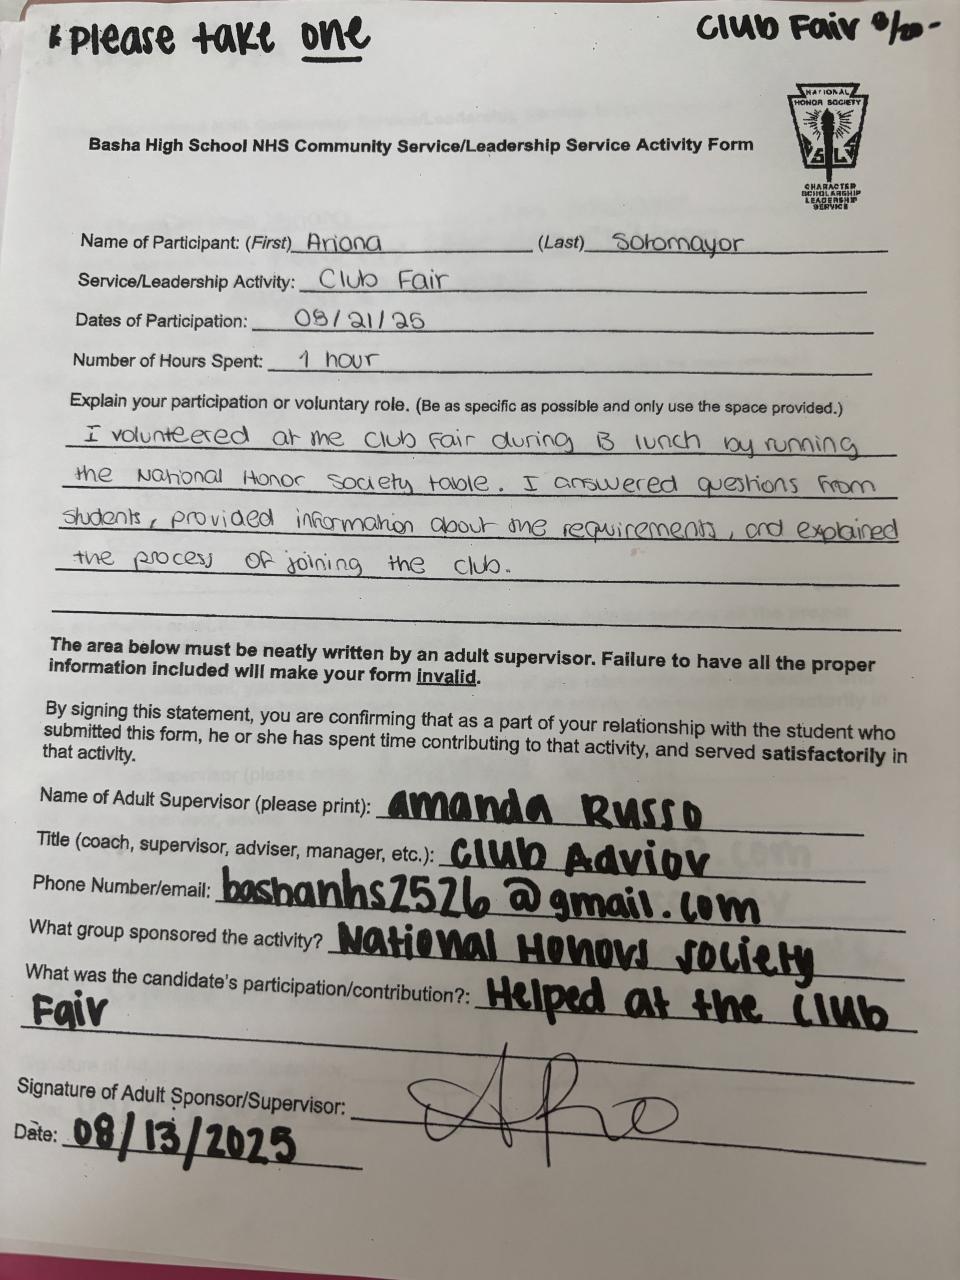 * Please take one
Club Fair 8/20-
NATIONAL
HONOR SOCIETY
CHARACTER
SCHOLARSHIP
LEADERSHIP
SERVICE
Basha High School NHS Community Service/Leadership Service Activity Form
Name of Participant: (First) Ariana (Last) Sotomayor
Service/Leadership Activity: Club Fair
Dates of Participation: 08/21/25
Number of Hours Spent: 1 hour
Explain your participation or voluntary role. (Be as specific as possible and only use the space provided.)
I volunteered at the club Fair during B lunch by running
the National Honor Society table. I answered questions from
students, provided information about the requirements, and explained
the process of joining the club.
The area below must be neatly written by an adult supervisor. Failure to have all the proper
information included will make your form invalid.
By signing this statement, you are confirming that as a part of your relationship with the student who
submitted this form, he or she has spent time contributing to that activity, and served satisfactorily in
that activity.
Name of Adult Supervisor (please print): amanda Russo
Title (coach, supervisor, adviser, manager, etc.): Club Advior
Phone Number/email: bashanhs2526@gmail.com
What group sponsored the activity? National Honors Society
What was the candidate's participation/contribution?: Helped at the Club
Fair
Signature of Adult Sponsor/Supervisor:
Date: 08/13/2025